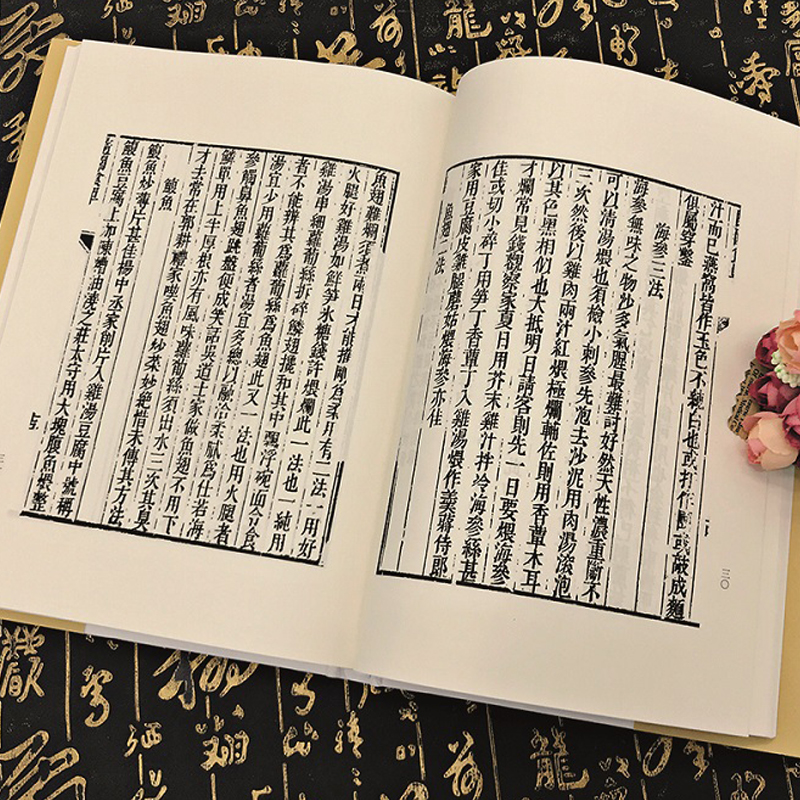 汁而已燕窩皆作玉色不純白也或打作團或敲成麵
俱屬穿鑿
海參三法
海參無味之物沙多氣腥最難討好然天性濃重斷不
可以清湯煨也須檢小刺參先泡去沙泥用肉湯滾泡
三次然後以雞肉兩汁紅煨極爛輔佐則用香蕈木耳
以其色黑相似也大抵明日請客則先一日要煨海參
才爛常見錢觀察家夏日用芥末雞汁拌冷海參絲甚
佳或切小碎丁用笋丁香蕈丁入雞湯煨作羹蔣侍郎
家用豆腐皮雞腿蘑菇煨海參亦佳
魚翅二法
三〇
魚翅難爛須煮兩日才能摧剛為柔用有二法一用好
火腿好雞湯加鮮笋冰糖錢許煨爛此一法也一純用
雞湯串細蘿蔔絲拆碎鱗翅攙和其中飄浮碗面令食
者不能辨其為蘿蔔絲為魚翅此又一法也用火腿者
湯宜少用蘿蔔絲者湯宜多總以融洽柔膩為佳若海
參觸鼻魚翅跳盤便成笑話吳道士家做魚翅不用下
鱗單用上半厚根亦有風味蘿蔔絲須出水二次其臭
才去常在郭耕禮家喫魚翅炒菜妙絕惜未傳其方法
鰒魚
鰒魚炒薄片甚佳楊中丞家削片入雞湯豆腐中號稱
鰒魚豆腐上加陳糟油澆之莊太守用大塊鰒魚煨整